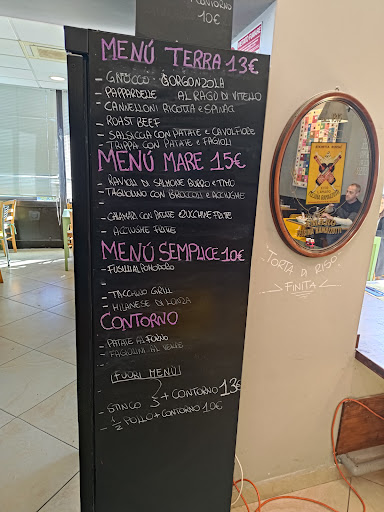 CONTORNO
10€
MENÚ TERRA 13€
- GNOCCO GORGONZOLA
- PAPPARDELLE AL RAGÙ DI VITELLO
- CANNELLONI RICOTTA e SPINACI
- ROAST BEEF
- SALSICCIA CON PATATE e CAVOLFIORE
- TRIPPA CON PATATE e FAGIOLI
MENÚ MARE 15€
- RAVIOLI DI SALMONE BURRO e TIMO
- TAGLIOLINO CON BROCCOLI e ACCIUGHE
- CALAMARI CON PATATE e ZUCCHINE FRITTE
- ACCIUGHE FRITTE
MENÚ SEMPLICE 10€
- FUSILLI AL POMODORO
-
- TACCHINO GRILL
- MILANESE DI LONZA
CONTORNO
- PATATE AL FORNO
- FAGIOLINI AL VERDE
FUORI MENÚ
- STINCO + CONTORNO 13€
- 1/2 POLLO + CONTORNO 10€
TORTA DI RISO
FINITA